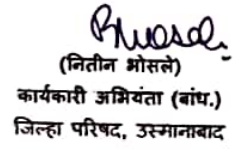 (नितीन भोसले)
कार्यकारी अभियंता (बांध.)
जिल्हा परिषद, उस्मानाबाद